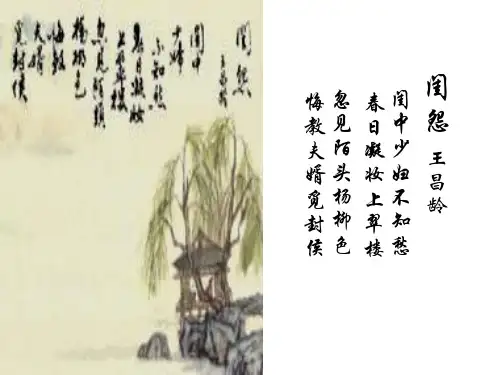 闺怨 王昌龄
闺中少妇不知愁
春日凝妆上翠楼
忽见陌头杨柳色
悔教夫婿觅封侯
闺怨
王昌龄
闺中
少婦
不知愁
春日凝妝
上翠楼
忽见陌頭
楊柳色
悔教
夫婿
觅封侯